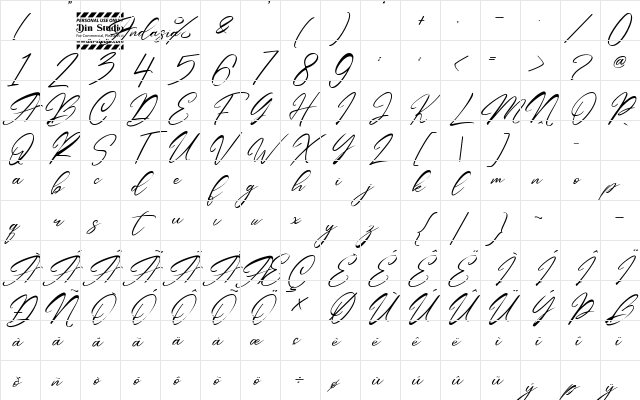 ! " PERSONAL USE ONLY Din Studio For Commercial, Please % & ' ( ) + , - . / 0
1 2 3 4 5 6 7 8 9 : ; < = > ? @
A B C D E F G H I J K L M N O P
Q R S T U V W X Y Z [ \ ] -
a b c d e f g h i j k l m n o p
q r s t u v w x y z { | } ~ -
À Á Â Ã Ä Å Æ Ç È É Ê Ë Ì Í Î Ï
Ð Ñ Ò Ó Ô Õ Ö × Ø Ù Ú Û Ü Ý Þ ß
à á â ã ä å æ ç è é ê ë ì í î ï
ð ñ ò ó ô õ ö ÷ ø ù ú û ü ý þ ÿ